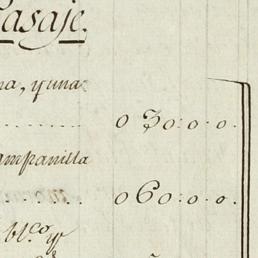 Pasaje.
na, y una
o 30: o. o.
ampanilla
o 60: o. o.
bl.co y